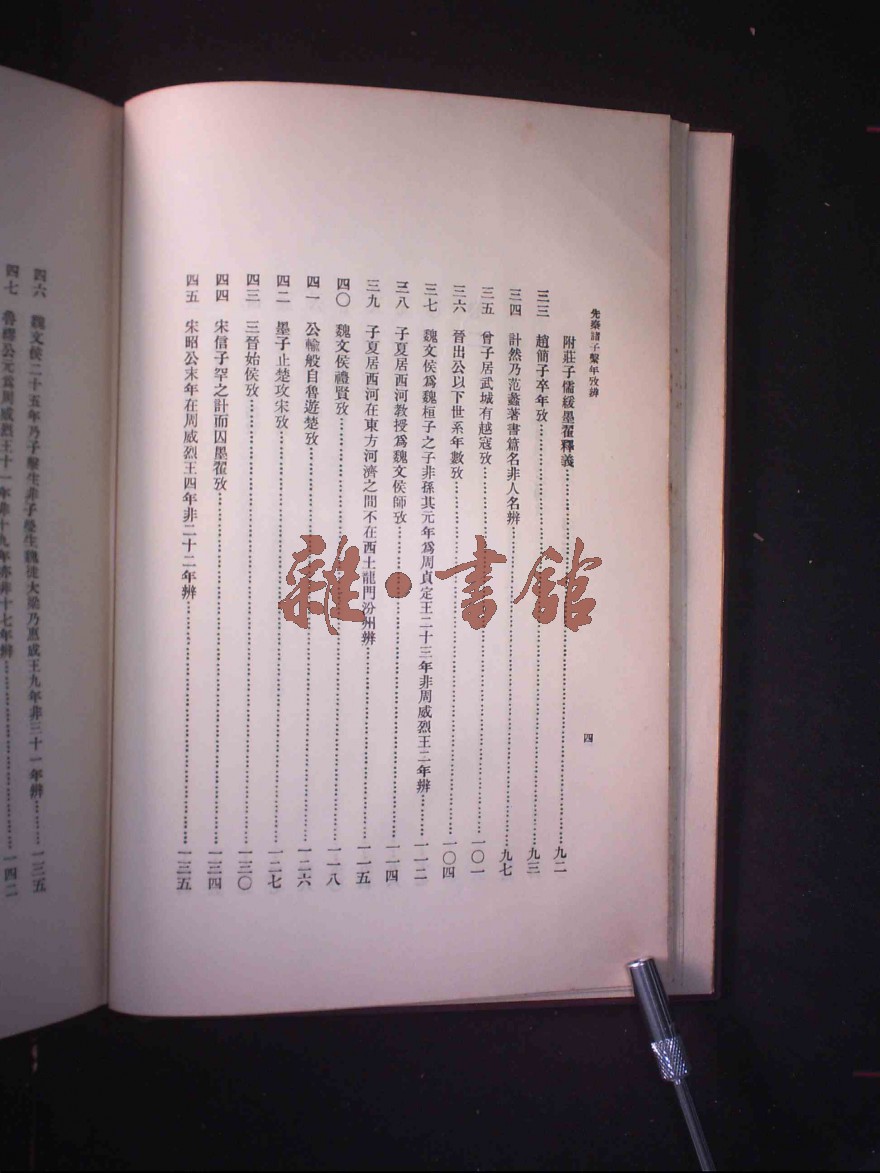 先秦諸子繫年攷辨
四
附莊子儒緩墨翟釋義……九二
三三 趙簡子卒年攷……九三
三四 計然乃范蠡著書篇名非人名辨……九七
三五 曾子居武城有越寇攷……一〇一
三六 晉出公以下世系年數攷……一〇四
三七 魏文侯爲魏桓子之子非孫其元年爲周貞定王二十三年非周威烈王二年辨……一一二
三八 子夏居西河教授爲魏文侯師攷……一一四
三九 子夏居西河在東方河濟之間不在西土龍門汾州辨……一一五
四〇 魏文侯禮賢攷……一一八
四一 公輸般自魯遊楚攷……一二六
四二 墨子止楚攻宋攷……一二七
四三 三晉始侯攷……一三〇
四四 宋信子罕之計而囚墨翟攷……一三四
四五 宋昭公末年在周威烈王四年非二十二年辨……一三五
四六 魏文侯二十五年乃子擊生非子罃生魏徙大梁乃惠成王九年非三十一年辨……一三五
四七 魯繆公元爲周威烈王十一年非十九年亦非十七年辨……一四二
雜·書館